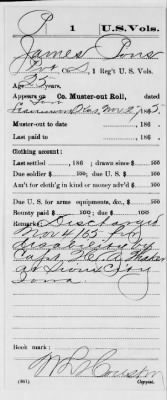 P 1 U.S. Vols.
James Pons
Pvt, Co. , 1 Reg't U. S. Vols.
Age 25 years.
Appears on
Co. Muster-out Roll, dated
Nov 27, 1865.
Muster-out to date , 186 .
Last paid to , 186 .
Clothing account:
Last settled , 186 ; drawn since $ 100
Due soldier $ 100; due U. S. $ 100
Am't for cloth'g in kind or money adv'd $ 100
Due U. S. for arms, equipments, &c., $ 100
Bounty paid $ 100; due $ 100
Remarks: Discharged
Nov 4/65 for
disability by
Capt.
at Sioux City
Iowa
Book mark:
(861) Copyist.